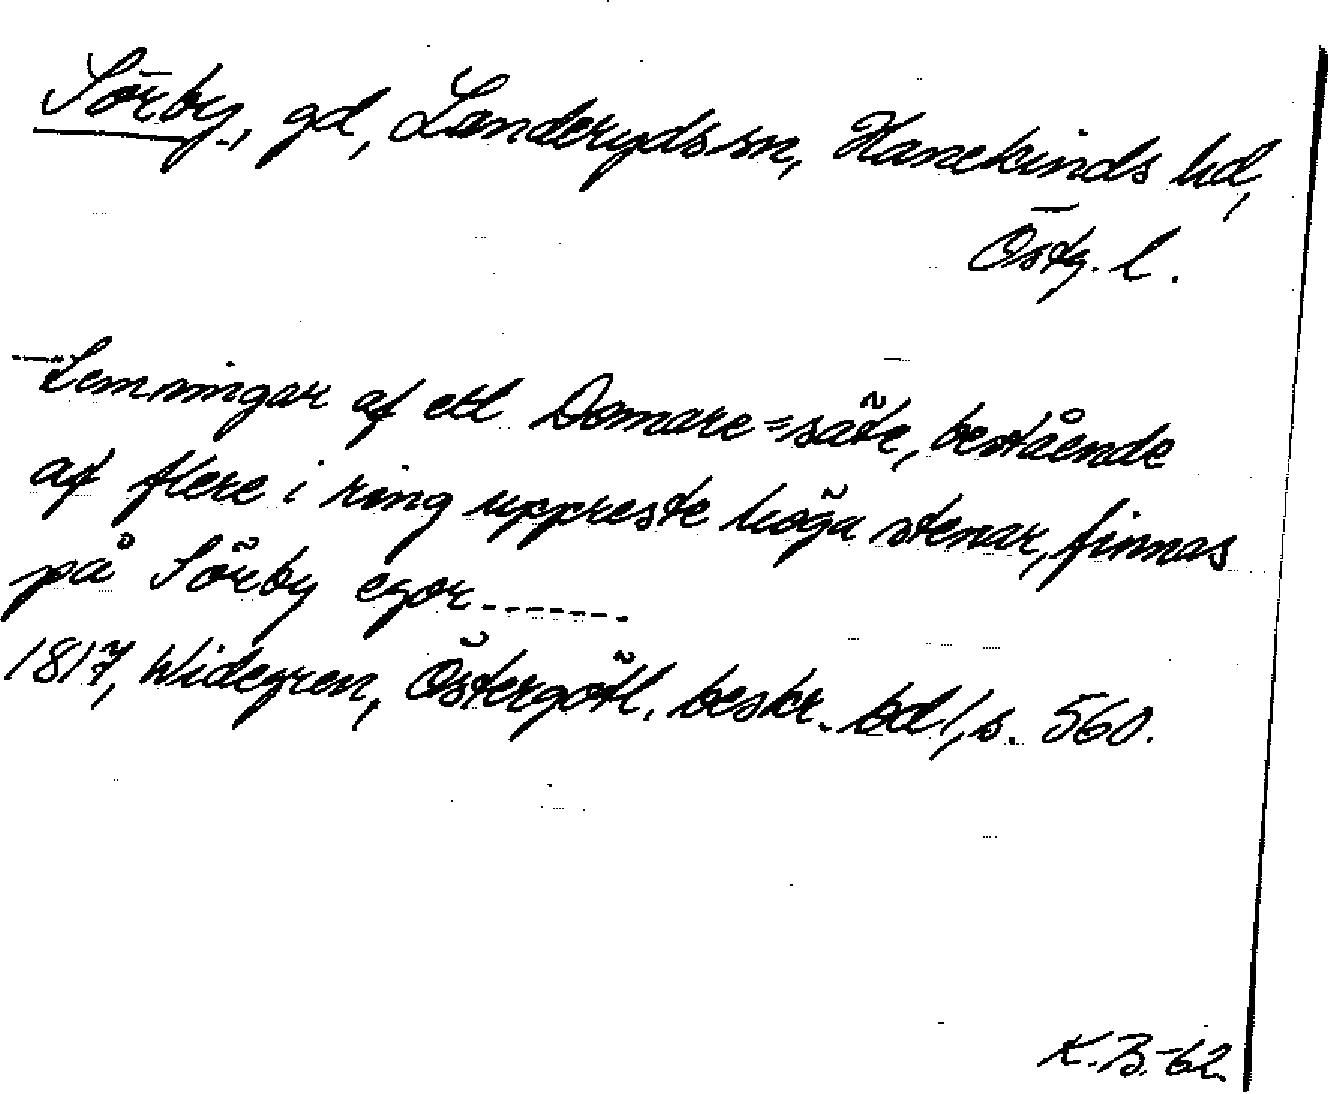 Sörby, gd, Landeryds sn, Hanekinds hd,
Östg. l.
Lemningar af ett Domare=säte, bestående
af flere i ring uppreste höga stenar, finnas
på Sörby egor-------
1817, Widegren, Östergötl. beskr. bd 1, s. 560.
K.B.-62